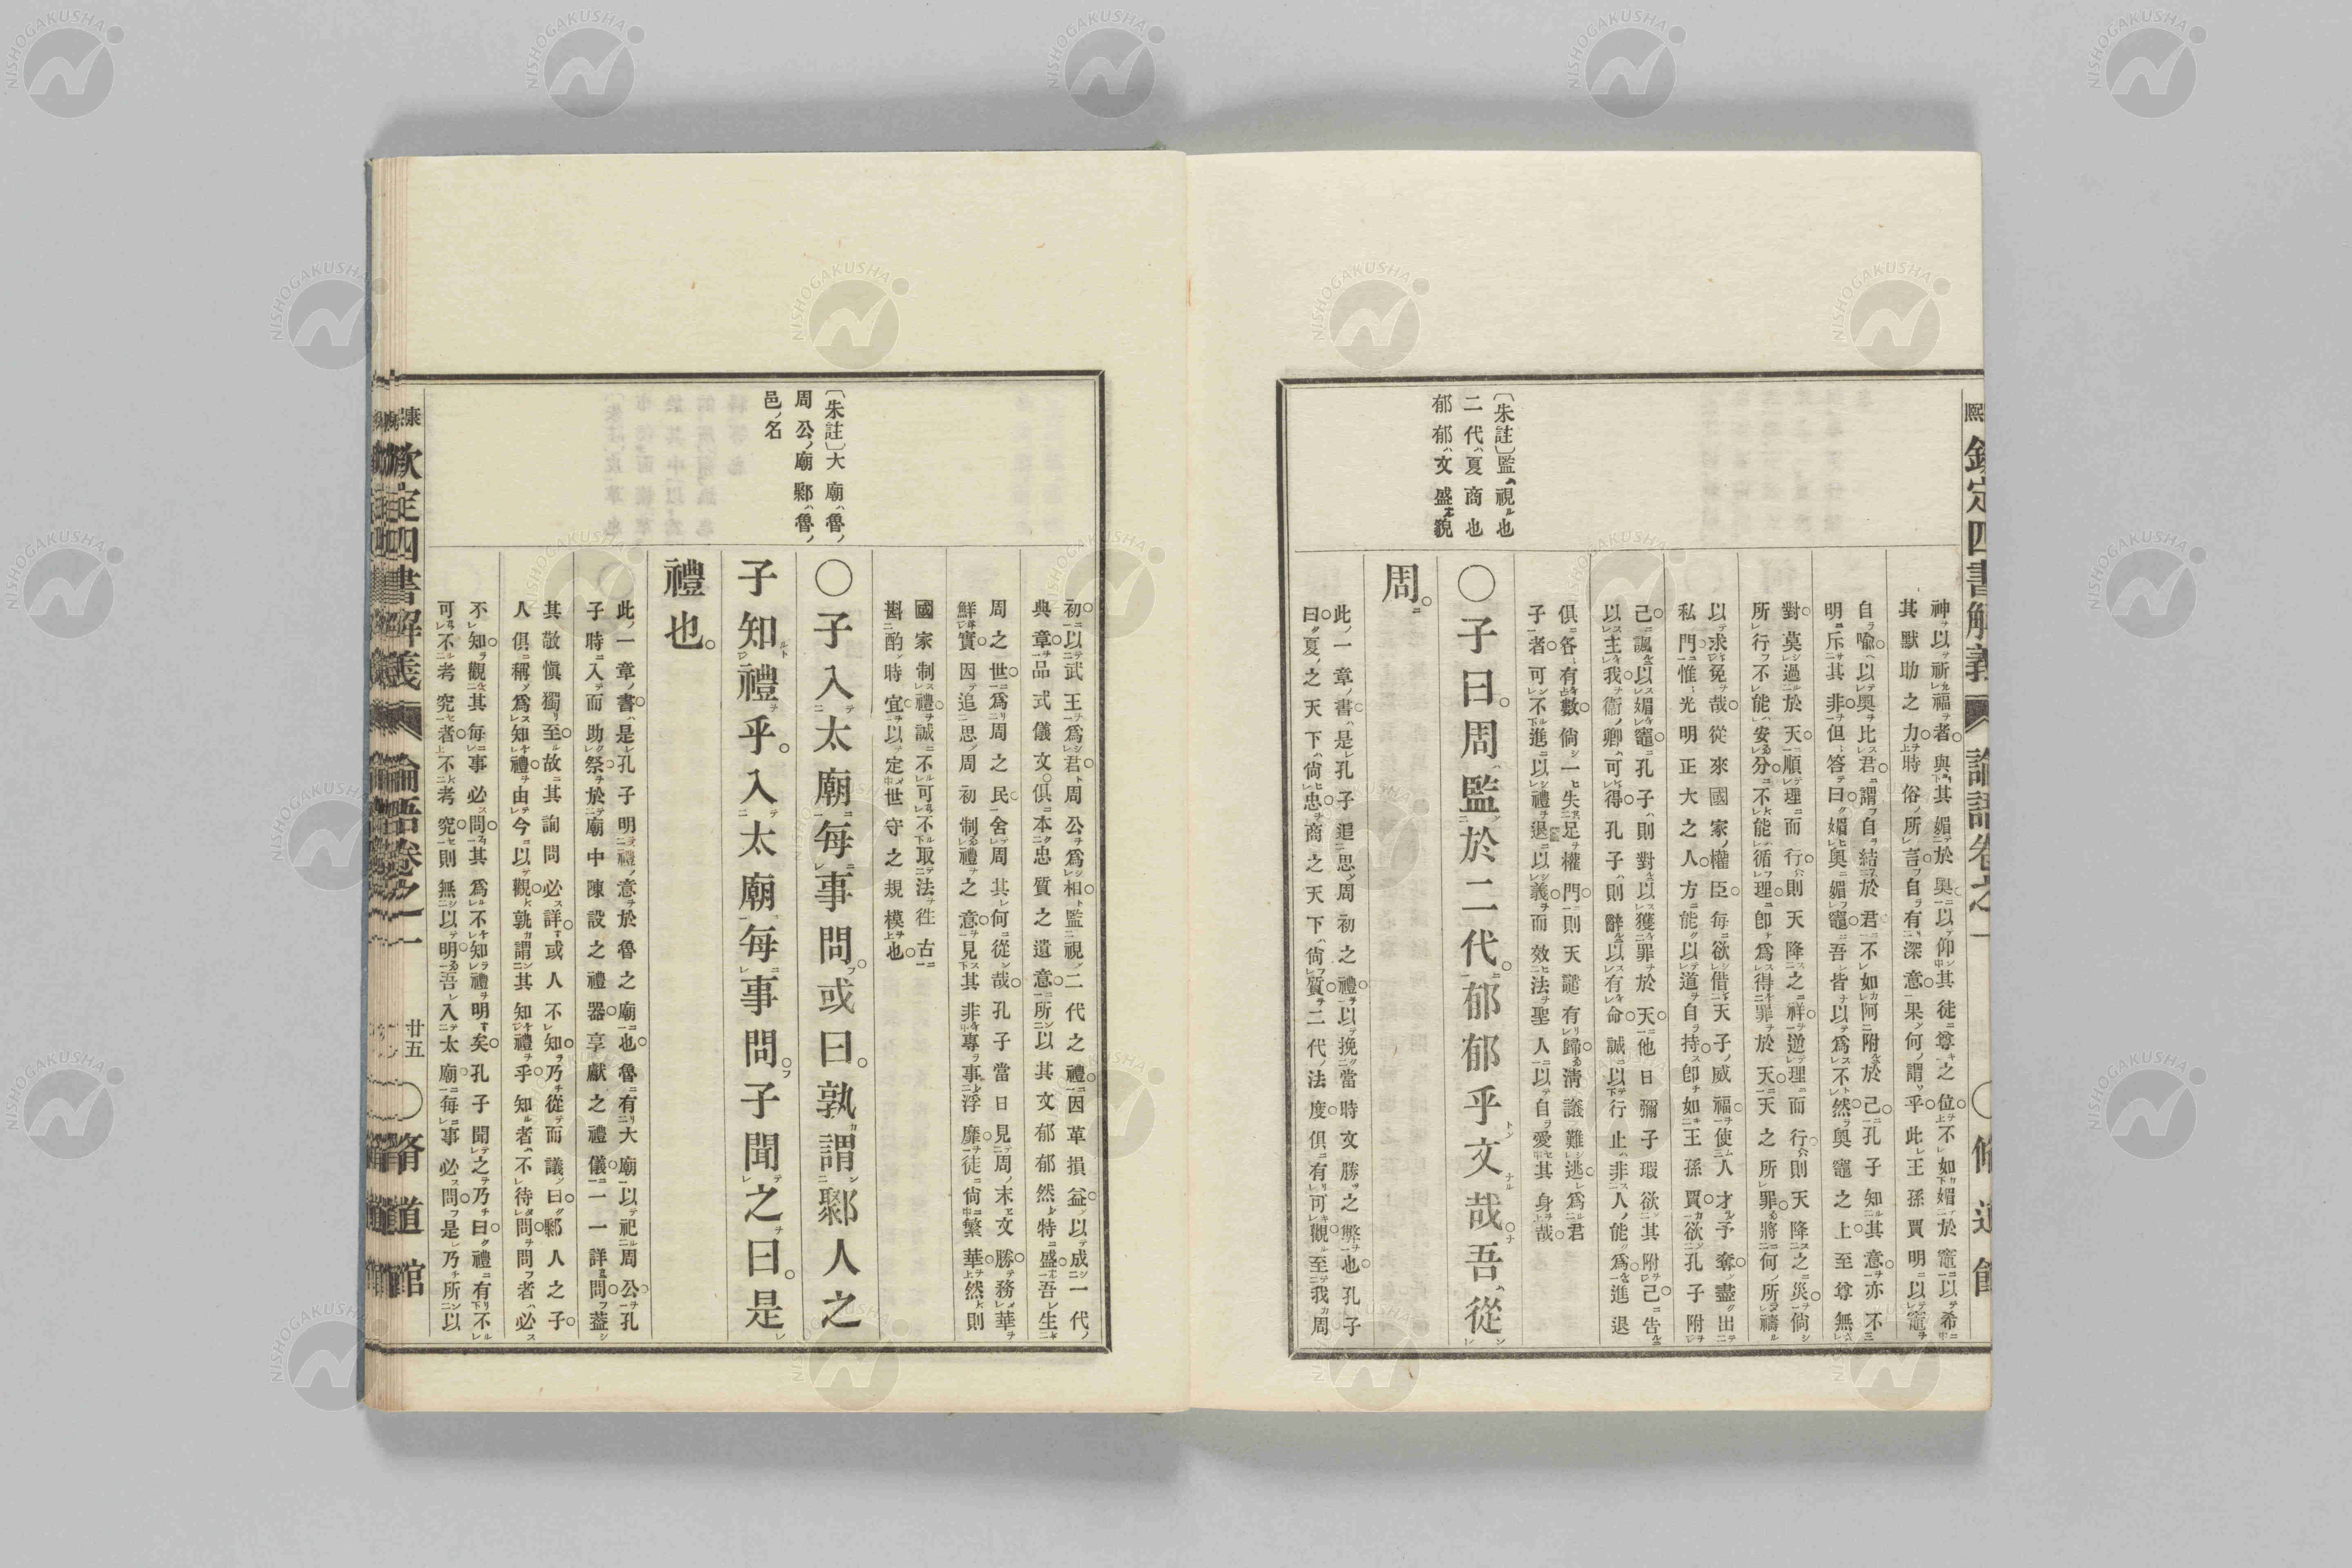 康熙欽定四書解義 論語卷之一 ○脩道館
神以祈福者與其媚於奧以仰其徒尊之位不如媚於竈以希
其默助之力時俗所言自有深意果何謂乎此王孫賈明以竈
自喩以奧比君謂自結於君不如阿附於己孔子知其意亦不
明斥其非但答曰媚奧媚竈吾皆以爲不然奧竈之上至尊無
對莫過於天順理而行則天降之祥逆理而行則天降之災倘
所行不能安分不能循理卽爲得罪於天天之所罪將何所禱
以求免哉從來國家權臣每欲借天子威福使人才予奪盡出
私門惟光明正大之人方能以道自持卽如王孫賈欲孔子附
己諷以媚竈孔子則對以獲罪於天他日彌子瑕欲其附己告
以主我衞卿可得孔子則辭以有命誠以行止非人能爲進退
俱各有數倘一失足權門則天譴有歸淸議難逃爲君
子者可不進以禮退以義而效法聖人以自愛其身哉
〔朱註〕監視也
二代夏商也
郁郁文盛貌
○子曰周監於二代郁郁乎文哉吾從
周
此一章書是孔子追思周初之禮以挽當時文勝之弊也孔子
曰夏之天下尙忠商之天下尙質二代法度俱有可觀至我周
初以武王爲君周公爲相監視二代之禮因革損益以成一代
典章品式儀文俱本忠質之遺意所以其文郁郁然特盛吾生
周之世爲周之民舍周其何從哉孔子當日見周末文勝務華
鮮實因追思周初制禮之意見其非專事浮靡徒尙繁華然則
國家制禮誠不可不取法往古
斟酌時宜以定世守之規模也
〔朱註〕大廟魯
周公廟鄹魯
邑名
○子入太廟每事問或曰孰謂鄹人之
子知禮乎入太廟每事問子聞之曰是
禮也
此一章書是孔子明禮意於魯之廟也魯有大廟以祀周公孔
子時入而助祭於廟中陳設之禮器享獻之禮儀一一詳問蓋
其敬愼獨至故其詢問必詳或人不知乃從而議曰鄹人之子
人俱稱爲知禮由今以觀孰謂其知禮乎知者不待問問者必
不知觀其每事必問其爲不知禮明矣孔子聞之乃曰禮有不
可不考究者不考究則無以明吾入太廟每事必問是乃所以
康熙欽定四書解義 論語卷之一 廿五 ○脩道館